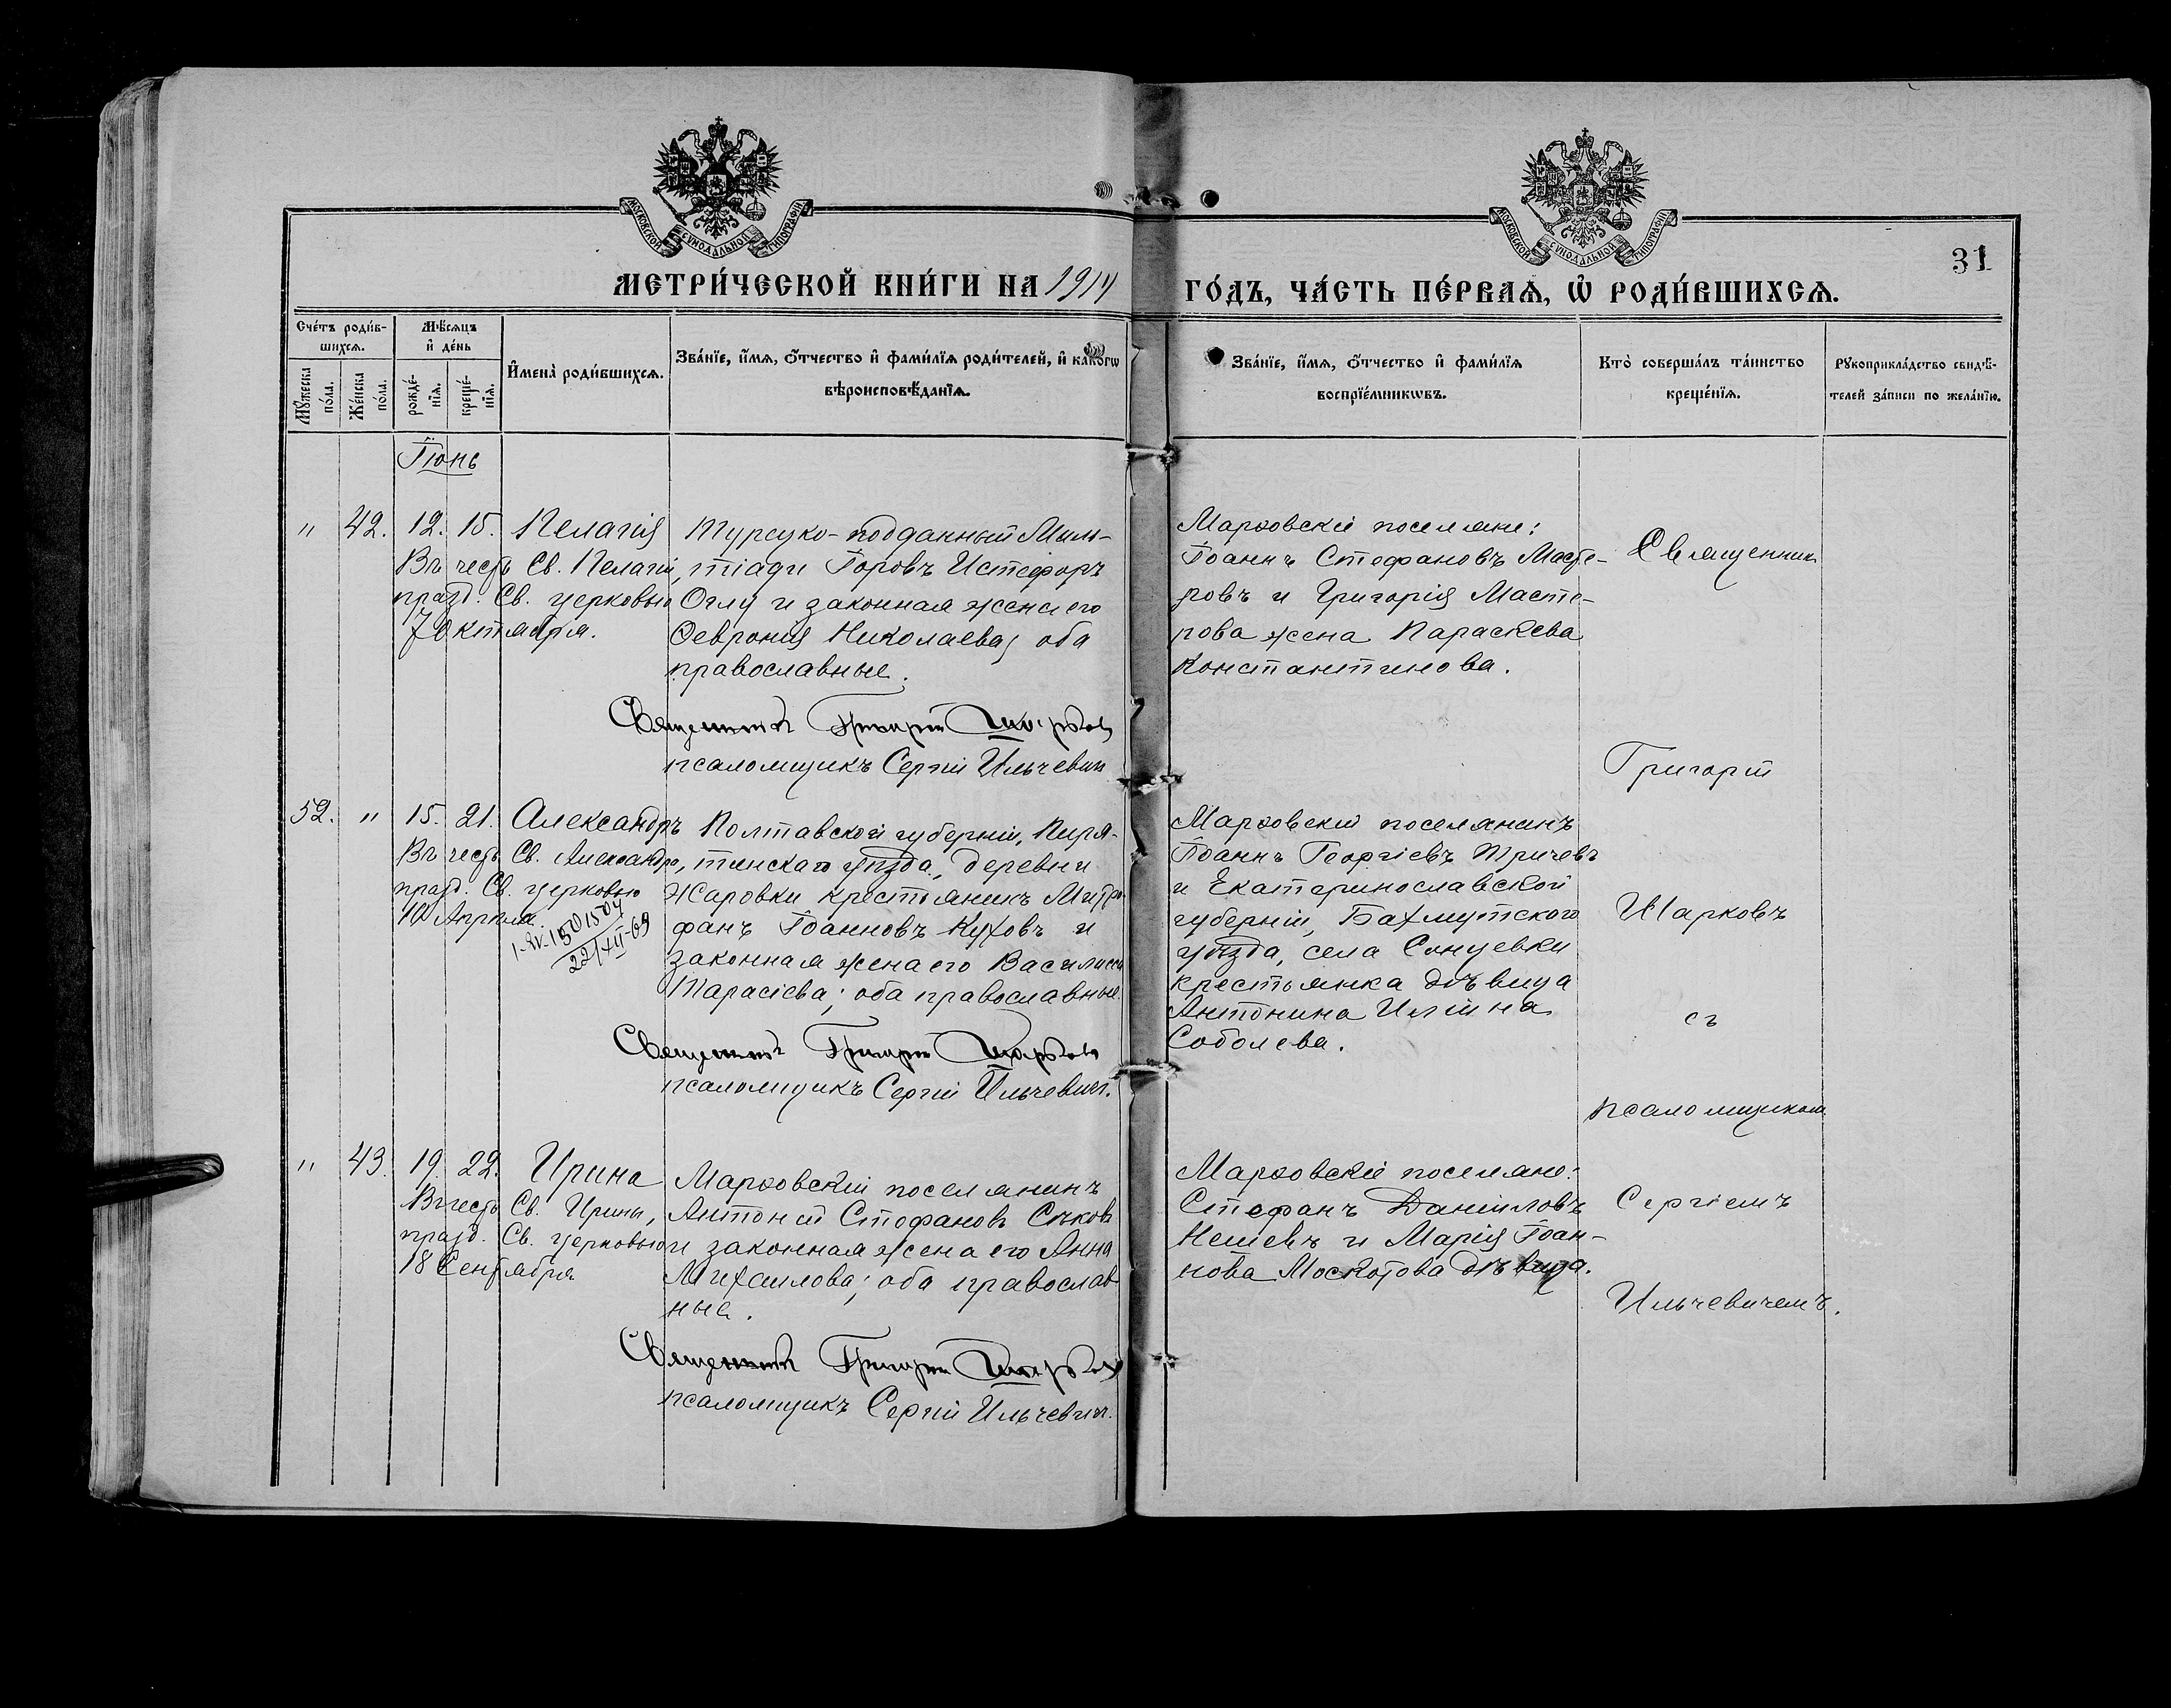 МОСКОВСКОЙ СѴНОДАЛЬНОЙ ТИПОГРАФІИ
МОСКОВСКОЙ СѴНОДАЛЬНОЙ ТИПОГРАФІИ
31
МЕТРИ́ЧЕСКОЙ КНИ́ГИ НА 1914 ГО́ДЪ, ЧА́СТЬ ПЕ́РВАѦ, Ѡ҆ РОДИ́ВШИХСѦ.
Сче́тъ роди́в-
шихсѧ.
Мѣ́сѧцъ
и҆ де́нь
Мꙋ́жеска
по́ла.
Же́нска
по́ла.
рожде́-
нїѧ.
креще́-
нїѧ.
И҆мена̀ роди́вшихсѧ.
Зва́нїе, и҆́мѧ, ѻ҆́тчество и҆ фами́лїѧ роди́телей, и҆ како́гѡ
вѣроисповѣ́данїѧ.
Зва́нїе, и҆́мѧ, ѻ҆́тчество и҆ фами́лїѧ
воспрїе́мникѡвъ.
Кто̀ соверша́лъ та́инство
креще́нїѧ.
Рꙋкоприкла́дство свидѣ́-
телей за́писи по жела́нїю.
Іюнь
" 42. 12. 15. Пелагія
Въ честь Св. Пелагіи,
празд. Св. церковью
7 Октября.
Турецко-подданный Миль-
тіади Іоровъ Истефоръ
Оглу и законная жена его
Февронія Николаева, оба
православные.
Священникъ Григорій Шарковъ
псаломщикъ Сергій Ильчевич
Маріовскіе поселяне:
Іоаннъ Стефановъ Масте-
ровъ и Григорія Масте-
рова жена Параскева
Константинова.
52. " 15. 21. Александръ
Въ честь Св. Александра,
празд. Св. церковью
10 Апрѣля.
22/XII-69
Полтавской губерніи, Пиря-
тинскаго уѣзда, деревни
Жаровки крестьянинъ Митро-
фанъ Іоанновъ Куховъ и
законная жена его Василисса
Тарасіева; оба православные.
Священникъ Григорій Шарковъ
псаломщикъ Сергій Ильчевич.
поселянинъ
Іоаннъ Георгіевъ Тричевъ
и Екатеринославской
губерніи, Бахмутского
уѣзда, села Сонцевки
крестьянка дѣвица
Антонина Иліина
Соболева.
" 43. 19. 22. Ирина
Въ честь Св. Ирины,
празд. Св. церковью
18 Сентября
поселянинъ
Антоній Стефановъ Сѣковъ
и законная жена его Анна
Михаилова; оба православ
ные.
Священникъ Григорій Шарковъ
псаломщикъ Сергій Ильчевич.
поселяне:
Стефанъ Даніиловъ
Нешевъ и Марія Іоан-
нова Москотова дѣвица.
Священник
Григорій
Шарковъ
съ
псаломщикомъ
Сергіемъ
Ильчевичемъ.